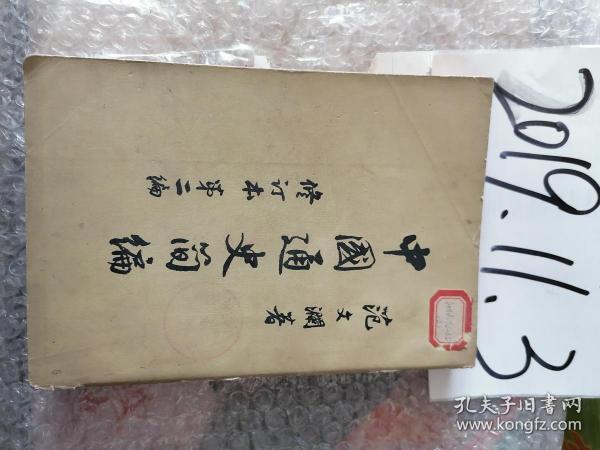 范文瀾著
中國通史简編
修订本 第二編
2019.11.3
孔夫子旧书网
www.kongfz.com